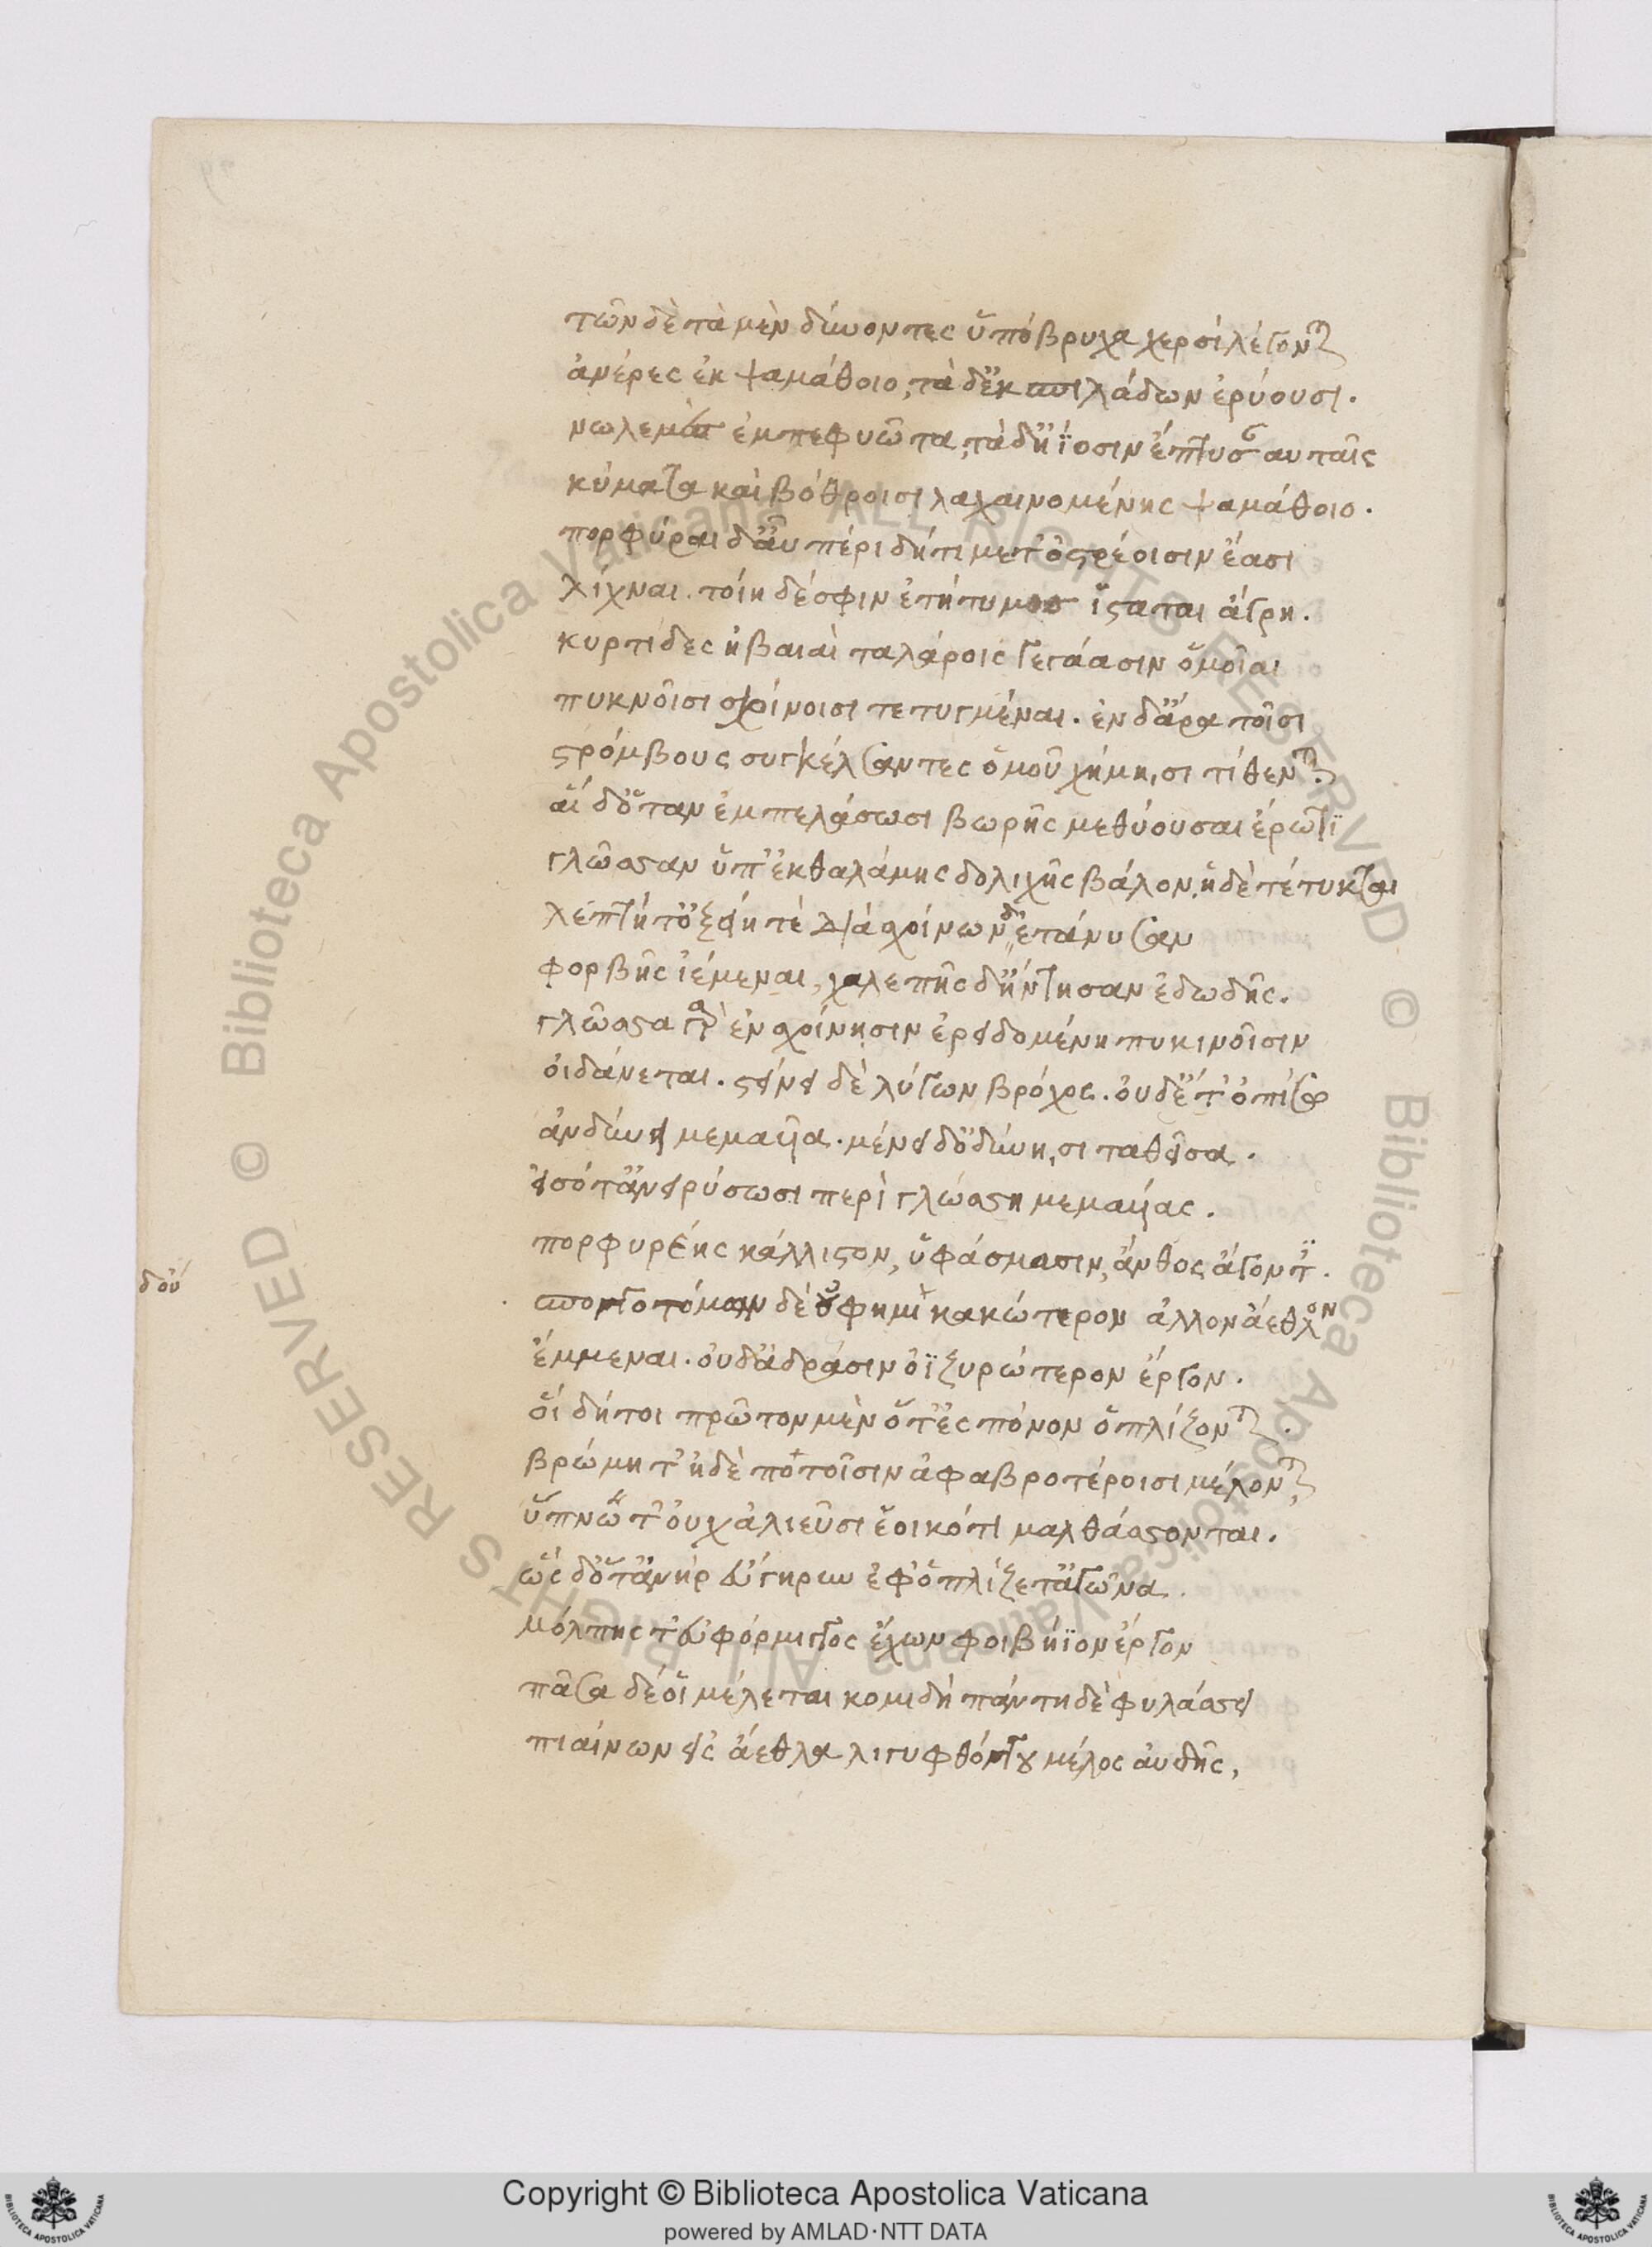 τῶν δὲ τὰ μὲν δύνοντες ὑπόβρυχα χερσὶ λέγονται
ἀνέρες ἐκ ψαμάθοιο, τὰ δ' ἐκ σπιλάδων ἐρύουσι.
νωλεμὲς ἐμπεφυῶτα, τὰ δ' ἠϊόσιν ἔπτυσεν αὐταῖς
κύματα καὶ βόθροισι λαχαινομένης ψαμάθοιο.
πορφύραι δ' αὖ πέρι δή τι μετ' ὀστρέοισιν ἔασι
λίχναι. τοίη δέ σφιν ἐτήτυμος ἵσταται ἄγρη.
κυρτίδες ἠβαιαὶ ταλάροις γεγάασιν ὁμοῖαι
πυκνοῖσι σχοίνοισι τετυγμέναι. ἐν δ' ἄρα τοῖσι
στρόμβους συγκέλσαντες ὁμοῦ χήμησι τίθενται.
αἱ δ' ὅταν ἐμπελάσωσι βορῆς μεθύουσαι ἔρωτι
γλῶσσαν ὑπ' ἐκ θαλάμης δολιχῆς βάλον. ἡ δὲ τέτυκται
λεπτή τ' ὀξείη τε διὰ σχοίνων δ' ἐτάνυσαν
φορβῆς ἱέμεναι, χαλεπῆς δ' ἤντησαν ἐδωδῆς.
γλῶσσα γὰρ ἐν σχοίνησιν ἐρειδομένη πυκινοῖσιν
οἰδάνεται. στείνει δὲ λύγων βρόχος. οὐδέ τ' ὀπίσω
ἀνδύνει μεμαυῖα. μένει δ' ὀδύνησι ταθεῖσα.
εἰσότ' ἂν εἰρύσωσι περὶ γλώσσῃ μεμαυίας.
πορφυρέης κάλλιστον, ὑφάσμασιν, ἄνθος ἄγοντι.
σπογγοτόμων δὲ οὔ φημι κακώτερον ἄλλον ἄεθλον
δ' οὐ
ἔμμεναι. οὐδ' ἀνδράσιν ὀϊζυρώτερον ἔργον.
οἱ δή τοι πρῶτον μὲν ὅτ' ἐς πόνον ὁπλίζονται.
βρώμῃ τ' ἠδὲ ποτοῖσιν ἀφαβροτέροισι μέλονται
ὕπνῳ τ' οὐχ ἁλιεῦσι ἐοικότι μαλθάσσονται.
ὡς δ' ὅτ' ἀνὴρ εὔγηρυν ἐφοπλίζετ' ἀγῶνα.
μόλπης τ' εὐφόρμιγγος ἔχων φοιβήϊον ἔργον
πᾶσα δέ οἱ μέλεται κομιδή πάντῃ δὲ φυλάσσει
πιαίνων εἰς ἄεθλα λιγυφθόγγου μέλος αὐδῆς,